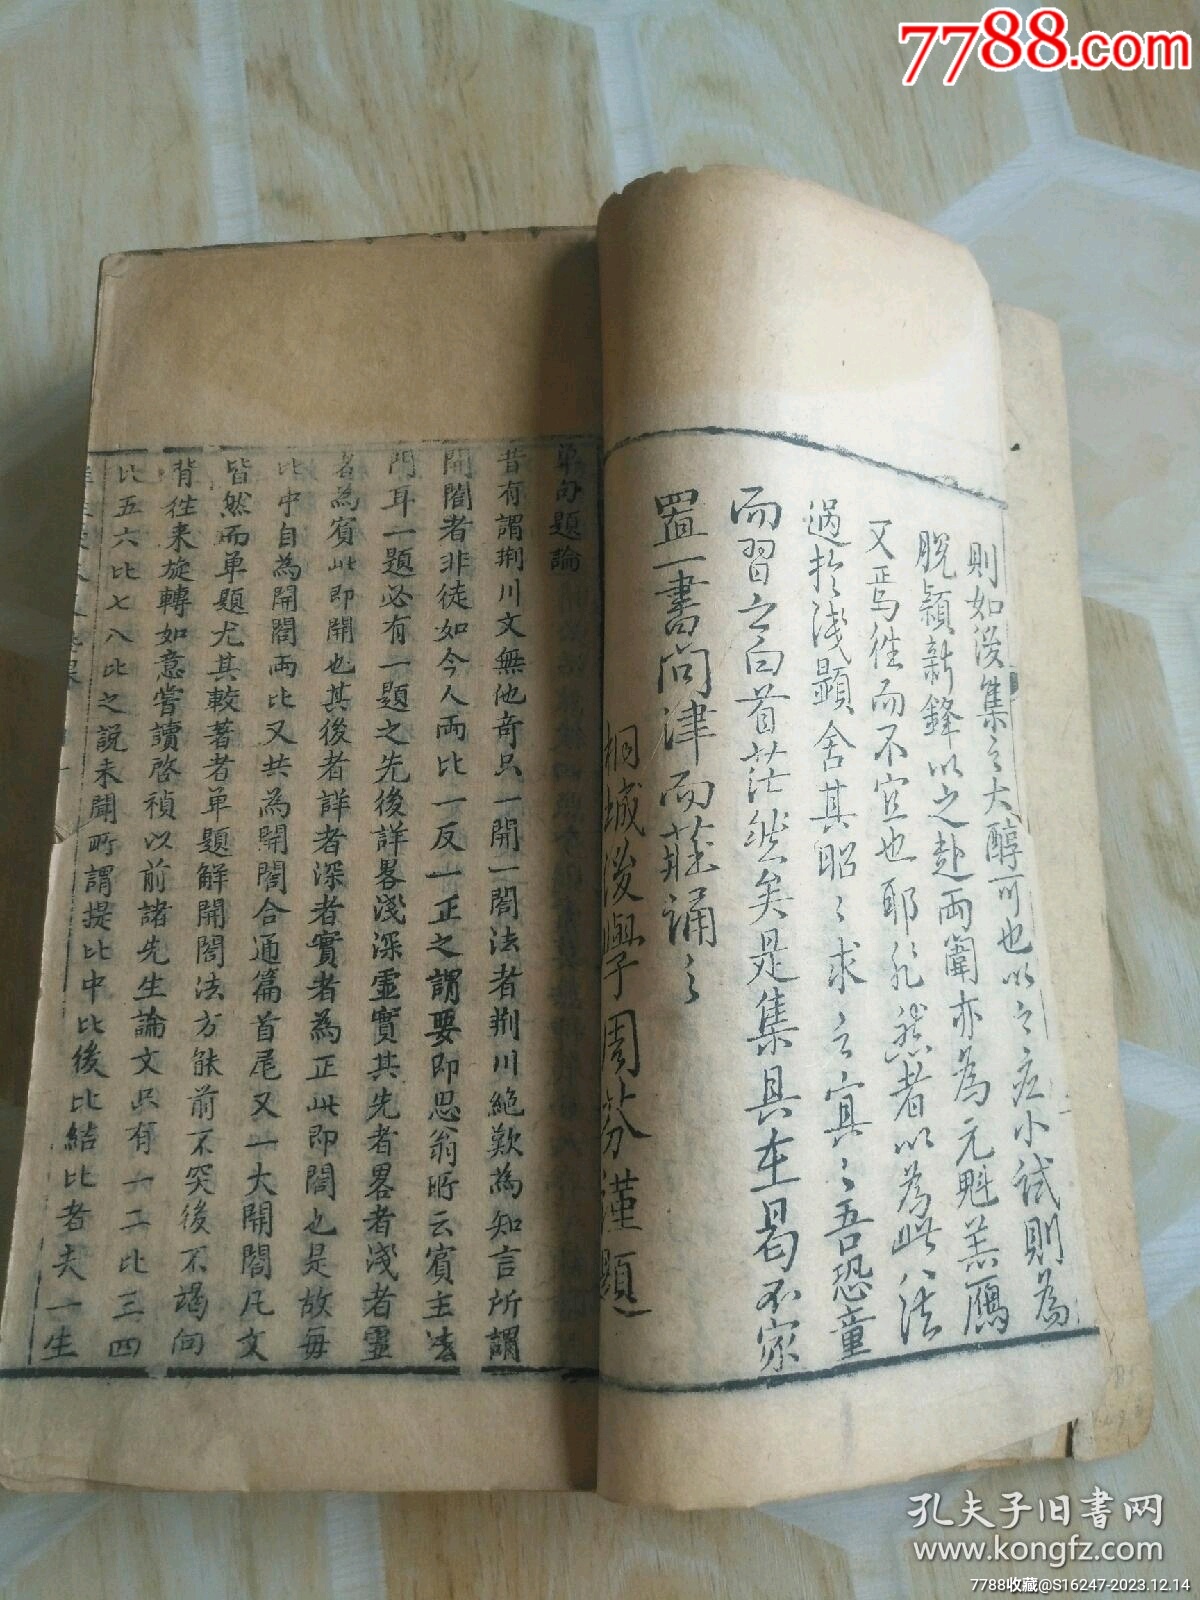 7788.com
則如後集之大醇可也以之應小試則為
脫穎新鋒以之赴兩闈亦為元魁羔鴈
又焉往而不宜也耶乃愁者以為此法
過於淺顯舍其昭〻求之冥〻吾恐童
而習之白首茫然矣是集具在曷不家
置一書尚津而莊誦之
桐城後學周芬謹題
單句題論
昔有謂荆川文無他奇只一開一闔法者荆川絕歎為知言所謂
開闔者非徒如今人兩比一反一正之謂要即思翁所云賓主法
門耳一題必有一題之先後詳畧淺深虛實其先者畧者淺者靈
者為賓此即開也其後者詳者深者實者為正此即闔也是故每
比中自為開闔兩比又共為開闔合通篇首尾又一大開闔凡文
皆然而單題尤其較著者單題解開闔法方能前不突後不竭向
背往來旋轉如意嘗讀啓禎以前諸先生論文只有一二比三四
比五六比七八比之說未聞所謂提比中比後比結比者夫一生
孔夫子旧书网
www.kongfz.com
7788收藏@S16247-2023.12.14